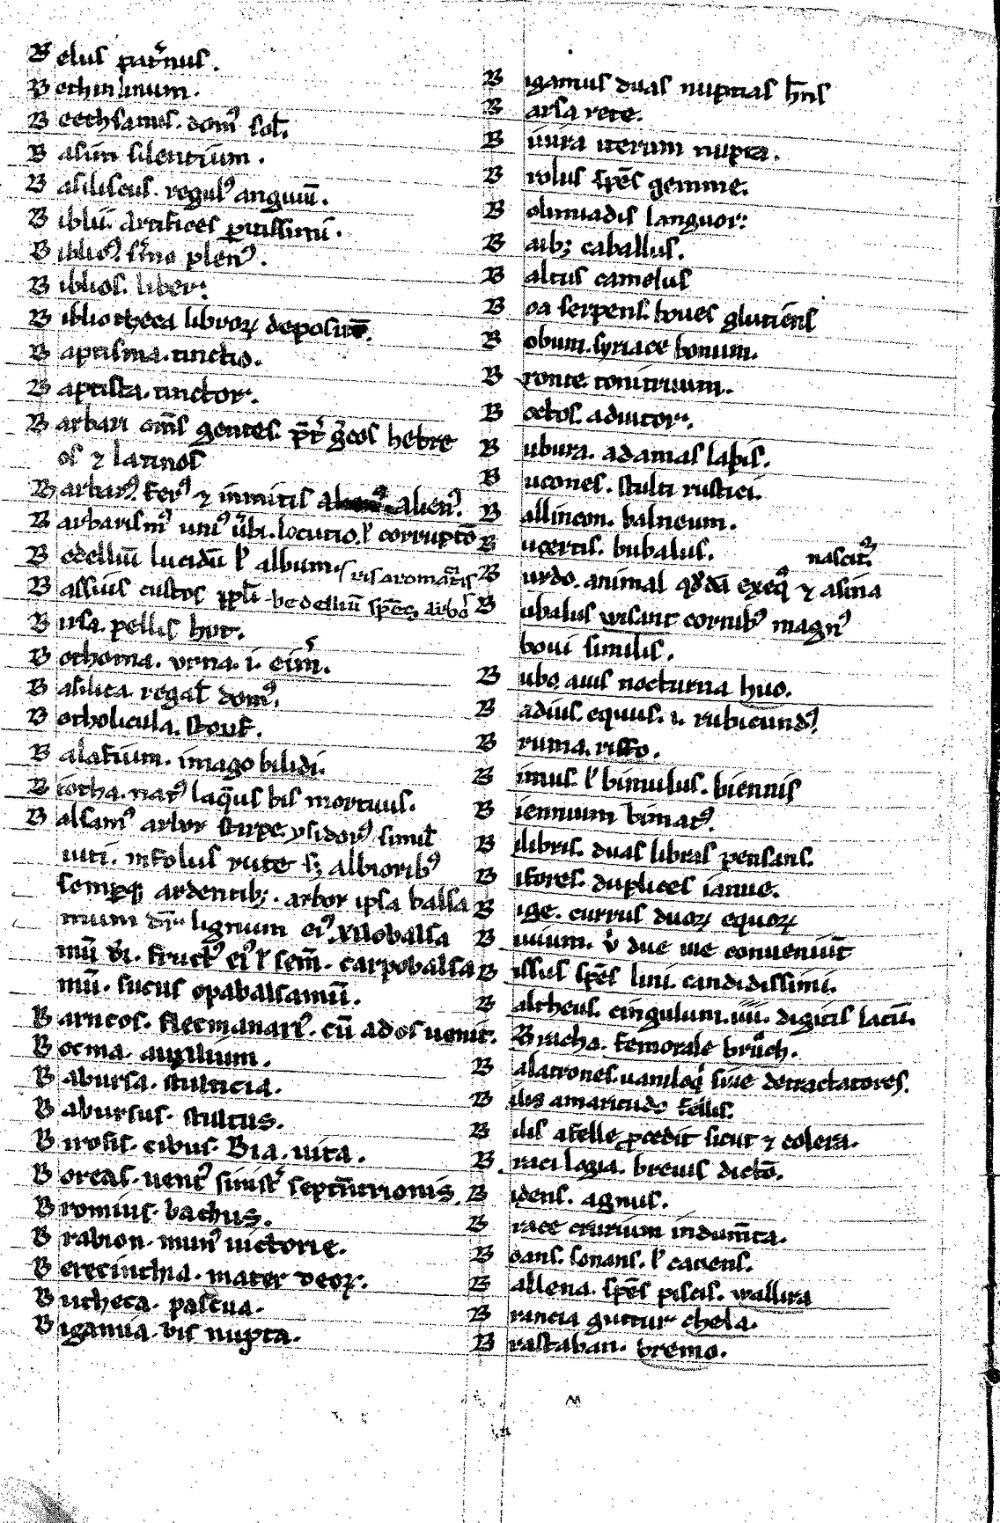 Belus pat'nus.
Bethin linum.
Beethsames. dom9 sol̅.
Basun silentium.
Basiliscus. regul9 anguiū.
Biblii. Artifices pitissimi.
Biblio9. s'mo plen9.
Biblios. liber.
Bibliotheca libroꝝ depositō.
Baptisma. tinctio.
Baptista. tinctor.
Barbari om̅s gentes. p̅t' g̅cos hebre
os ⁊ latinos
Barbar9. fer9 ⁊ inmitis alien9.
Barbarism9 uni9 u'bi. locutio. ł corruptō
Bedelliū lucidū ł album
ris aromatis
Bassius custos bedelliū sp̅es arbo
Birsa. pellis hut.
Bothoma. vrna. i. eim̅.
Basilica regal̅ dom9.
Botholicula. stouf.
Balatium. imago bilidi.
Biotha. nat9 laq̅us bis mortuus.
Balsam9 arbor stirpe ysidor9 simil̅
uiti. infolus rute s; albiorib9
sempq; ardentib;. arbor ipsa balsa
mum dr̅ lignum ei9. Xilobalsa
mū. fruct9 ei9 ł sem̅. carpobalsa
mū. sucus opabalsamū.
Barncos. Necmanari9. cū ad os uenit.
Bocma. auxilium.
Babursa. stulticia.
Babursus. stultus.
Birosis. cibus. Bia. uita.
Boreas. uent9 sinist' septn̅trionis.
Bromius. bachus.
Brabion. mun9 uictorie.
Berecinthia. mater deoꝝ.
Butheca. pascua.
Bigamia. bis nupta.
Bigamus duas nuptias hn̅s
Barsa rete.
Biuira iterum nupta.
Brolus sp̅es gemme.
Bolimiadis languor:
Baib; caballus.
Baltus camelus
Boa serpens. boues glutiens
Bobum. syriace bonum.
Bronte tonitruum.
Boetos. adiutor.
Bubura. adamas lapis.
Bucones. stulti rustici.
Ballincon. balneum.
Bucertis. bubalus. nascit'
Burdo. animal qd̅dā ex eq9 ⁊ asina
Bubalus wisant cornib9 magn9
boui similis.
Bubo auis nocturna huo.
Badius. equus. i. rubicund9
Bruma. riffo.
Bimus. ł bimulus. biennis
Biennium bimat9.
Bilibris. duas libras pensans.
Bifores. duplices ianue.
Bige. currus duoꝝ equoꝝ
Biuium. v' due uie conueniūt
Bissus sp̅es lini. candidissimi.
Baltheus. cingulum. iiii. digitis latū.
Bracha. femorale bruͦch.
Balatrones. uaniloq' siue detractatores.
Bilis amaritudo fellis.
Bilis a felle p̱cedit sicut ⁊ colera.
Bracilogia. breuis dictō.
Bidens. agnus.
Brace crurium indumn̅ta.
Boans. sonans. ł canens.
Ballena. sp̅es piscis. wallira
Brancia guttur chela.
Brastaban. bremo.